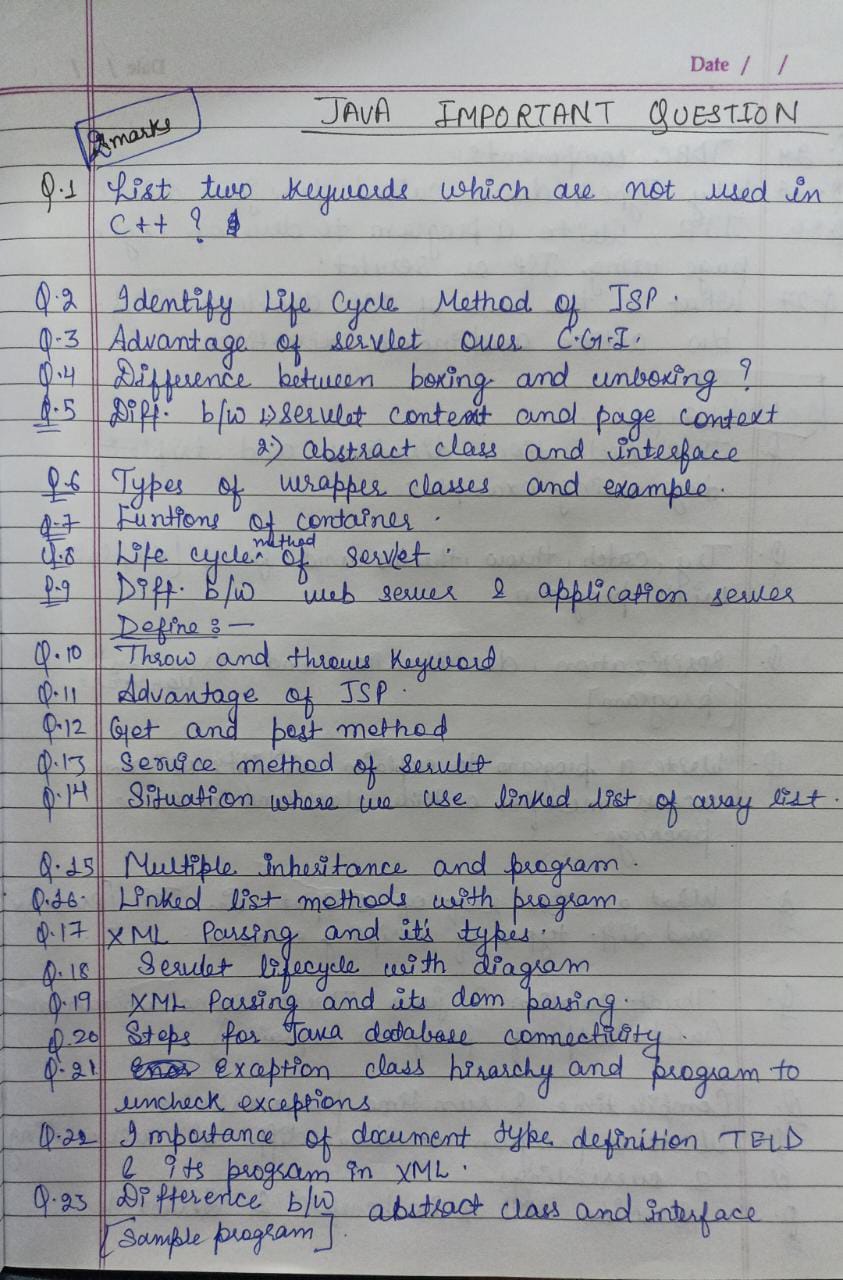 Date / /
JAVA IMPORTANT QUESTION
2marks
Q.1 List two keywords which are not used in
C++ ?
Q.2 Identify Life Cycle Method of JSP.
Q.3 Advantage of servlet over C.G.I.
Q.4 Difference between boxing and unboxing ?
Q.5 Diff. b/w 1) Servlet context and page context
2) abstract class and interface
Q.6 Types of wrapper classes and example.
Q.7 Funtions of container.
Q.8 Life cycle method of servlet.
Q.9 Diff. b/w web server & application server
Define :-
Q.10 Throw and throws Keyword
Q.11 Advantage of JSP.
Q.12 Get and post method
Q.13 Service method of Servlet
Q.14 Situation where we use linked list of array list.
Q.15 Multiple inheritance and program.
Q.16. Linked list methods with program
Q.17 XML Parsing and it's types.
Q.18 Servlet lifecycle with diagram
Q.19 XML Parsing and its dom parsing.
Q.20 Steps for Java database connectivity.
Q.21 Exception class hirarchy and program to
uncheck exceptions
Q.22 Importance of document type definition
& its program in XML.
Q.23 Difference b/w abstract class and interface
[Sample program].